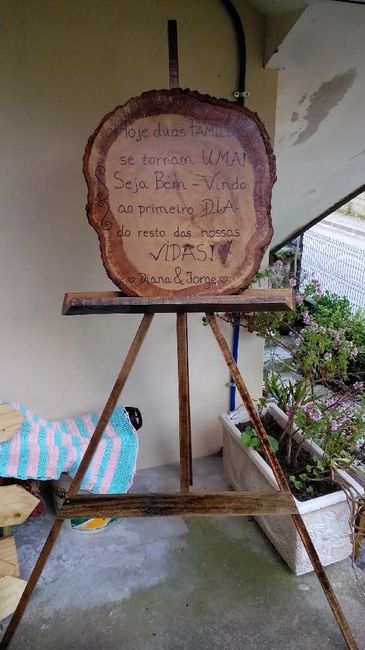 Hoje duas FAMÍLIAS
se tornam UMA!
Seja Bem-Vindo
ao primeiro DIA
do resto das nossas
VIDAS!
Diana & Jorge